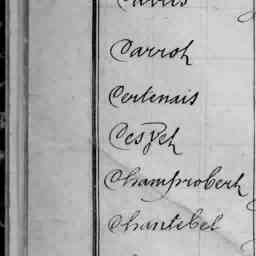 Carroh
Certenais
Cespeh
Champroberh
Chantebel